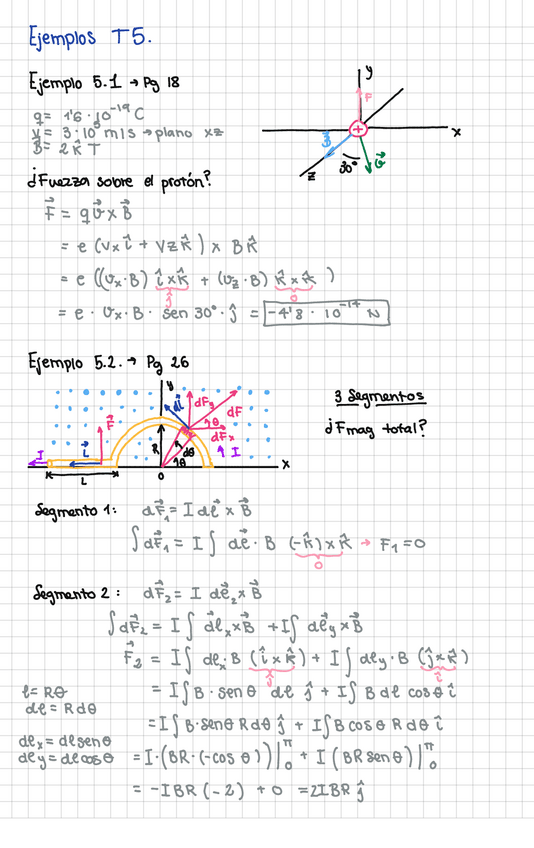 Ejemplos T5.
Ejemplo 5.1 → Pg 18
q = 1'6 · 10⁻¹⁹ C
v = 3 · 10⁵ m/s → plano xz
B = 2 k̂ T
y
F
x
z
30°
¿Fuezza sobre el protón?
F⃗ = q v⃗ × B⃗
= e (Vx î + Vz k̂) × B k̂
= e ((Vx · B) î × k̂ + (Vz · B) k̂ × k̂)
ĵ 0
= e · Vx · B · sen 30° · ĵ = -4'8 · 10⁻¹⁴ N
Ejemplo 5.2. → Pg 26
y
dl⃗
dFy
dF
θ
dFx
F⃗
R
dθ
I
I
L⃗
θ
x
L
0
3 Segmentos
¿Fmag total?
Segmento 1: dF⃗₁ = I dl⃗ × B⃗
∫ dF⃗₁ = I ∫ dl⃗ · B (-k̂) × k̂ → F₁ = 0
0
Segmento 2: dF⃗₂ = I dl⃗₂ × B⃗
∫ dF⃗₂ = I ∫ dl⃗x × B⃗ + I ∫ dl⃗y × B⃗
F⃗₂ = I ∫ dlx B (î × k̂) + I ∫ dly · B (ĵ × k̂)
ĵ î
l = Rθ
dl = R dθ
dlx = dl senθ
dly = dl cosθ
= I ∫ B · sen θ dl ĵ + I ∫ B dl cos θ î
= I ∫ B · sen θ R dθ ĵ + I ∫ B cos θ R dθ î
= I · (BR · (-cos θ)) |₀^π + I (BR sen θ) |₀^π
= -IBR (-2) + 0 = 2IBR ĵ